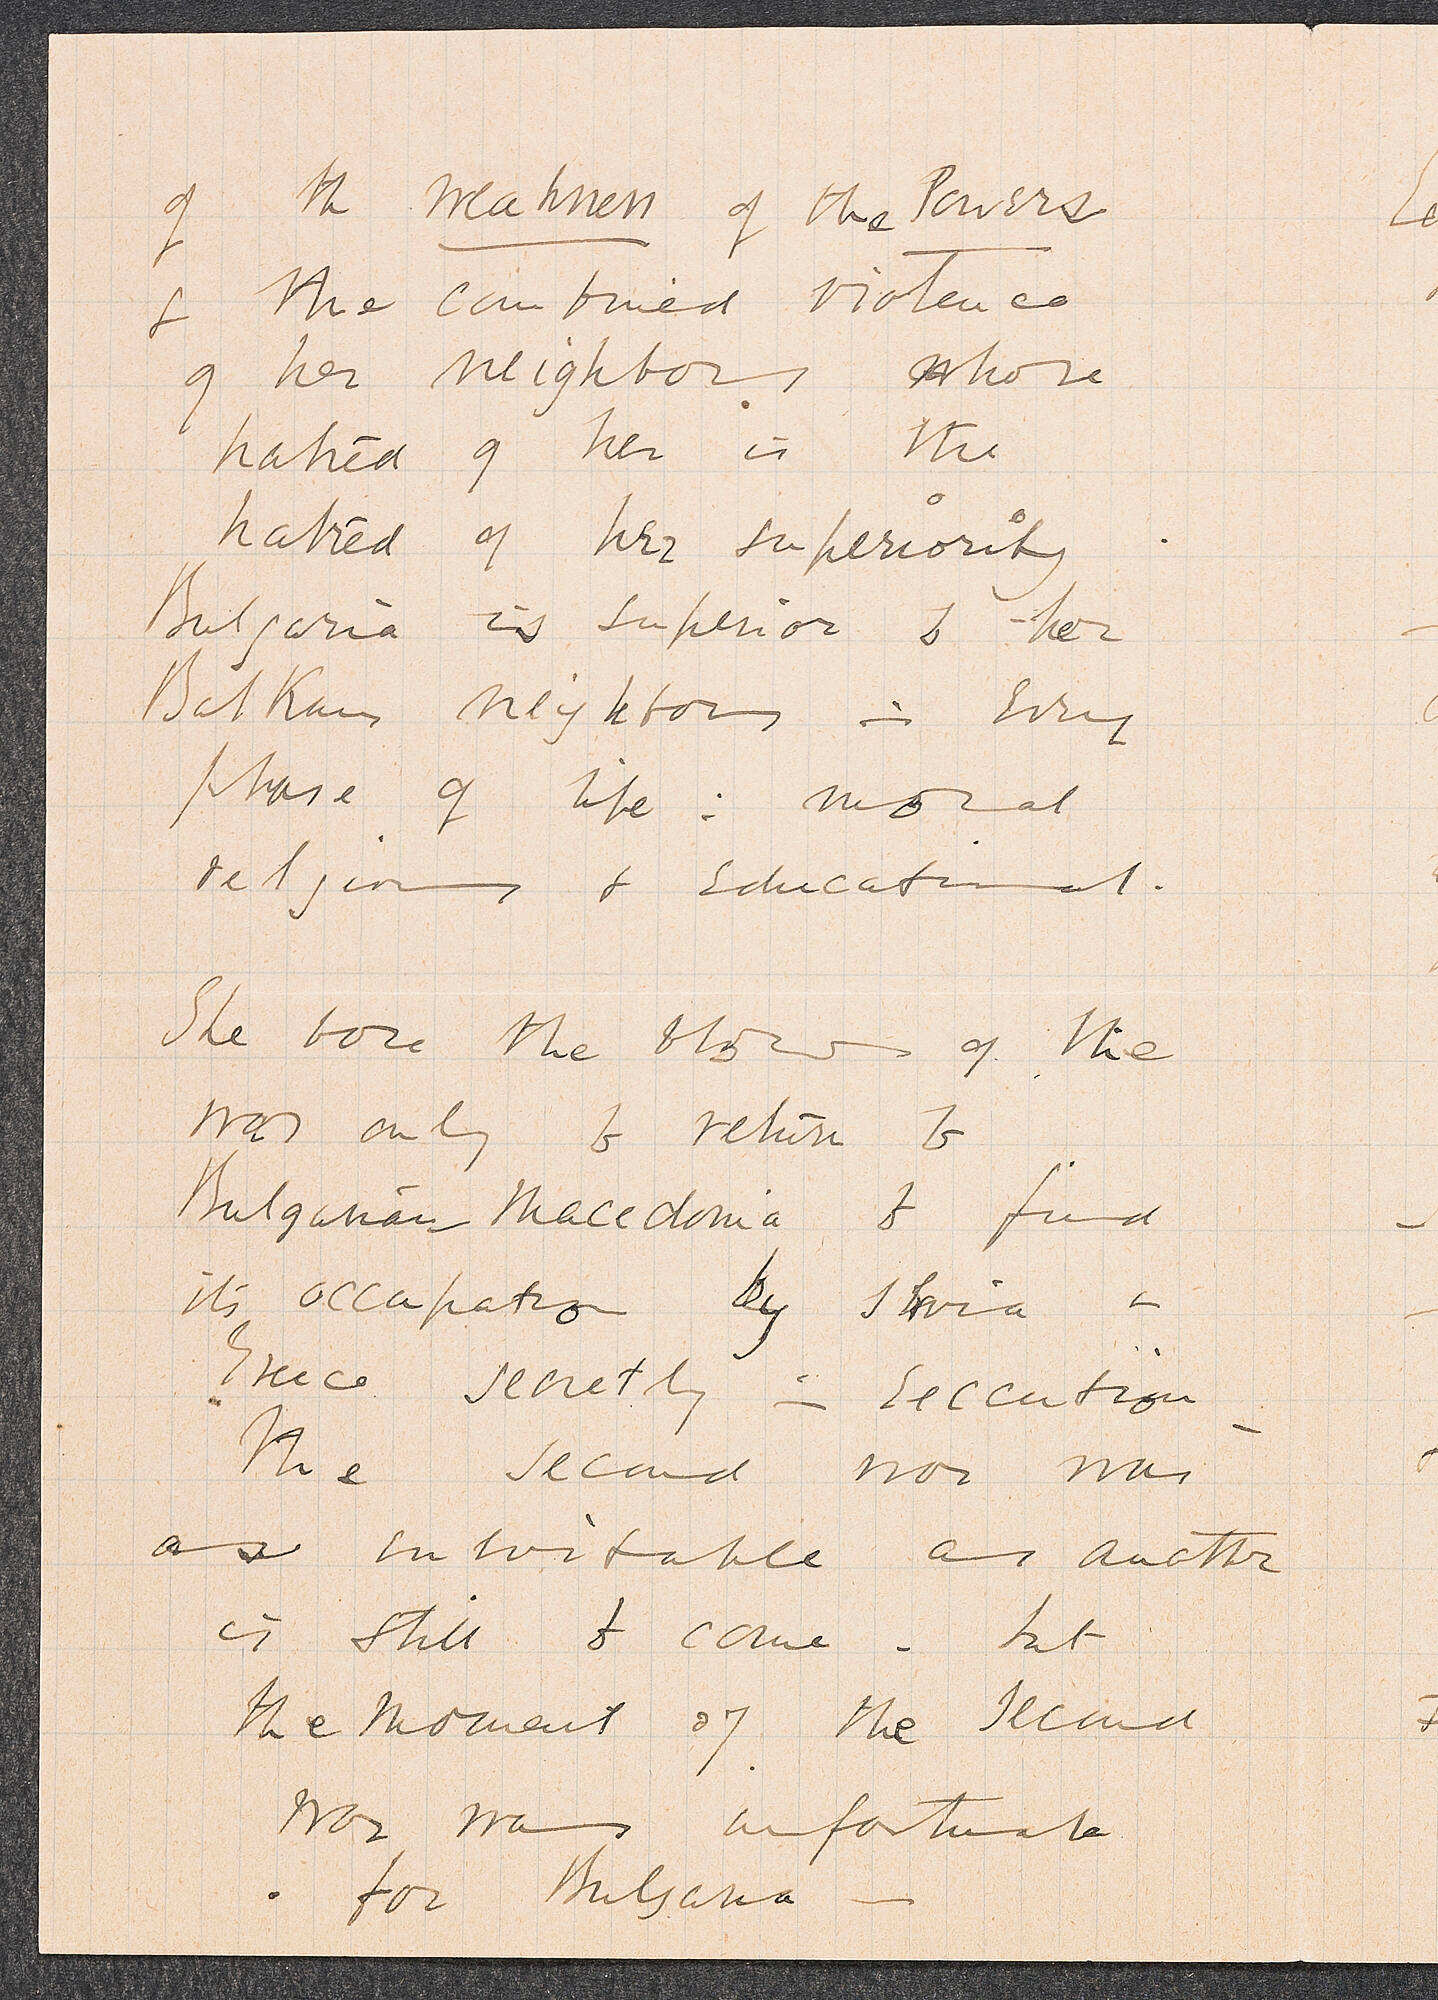 of the weakness of the Powers
& the combined violence
of her neighbors whose
hatred of her is the
hatred of her superiority.
Bulgaria is superior to her
Balkans neighbors in every
phase of life: moral
religious & educational.
She bore the blows of the
war only to return to
Bulgarian Macedonia to find
its occupation by Servia &
Greece secretly in execution_
The second war was
as inevitable as another
is still to come - but
the moment of the second
war was unfortunate
for Bulgaria —